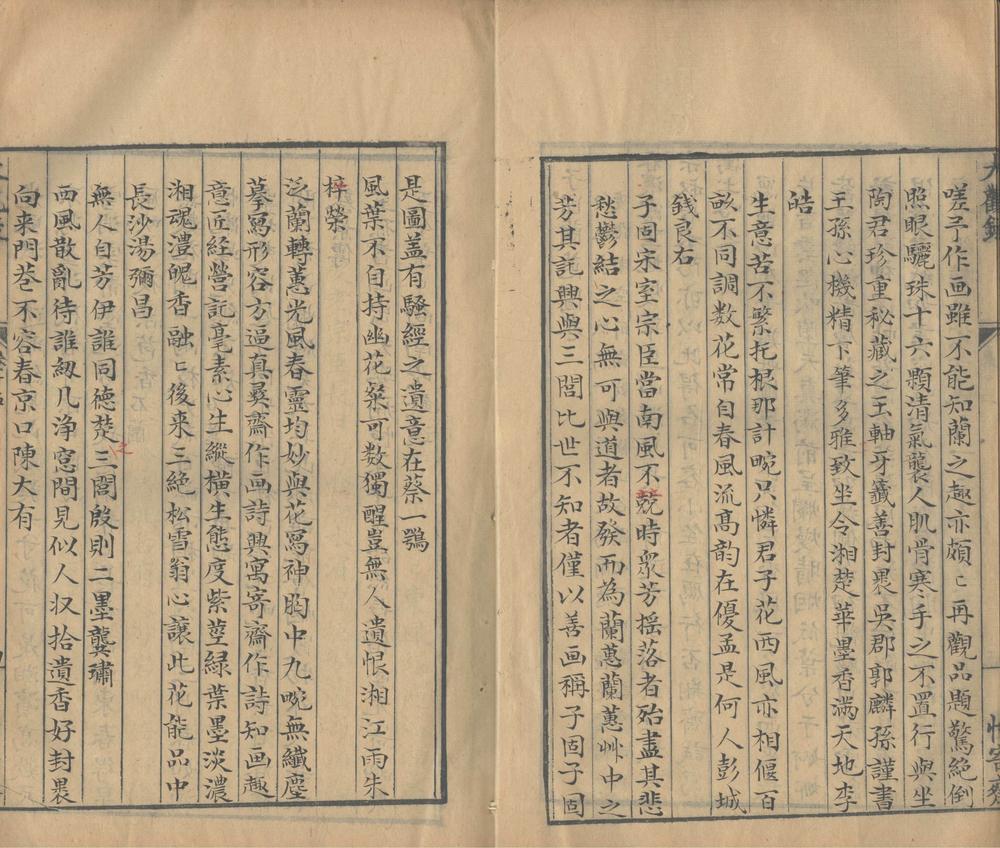 嗟予作画雖不能知蘭之趣亦頗〻再觀品題驚絕倒
照眼驪珠十六顆清氣襲人肌骨寒手之不置行與坐
陶君珍重秘藏之玉軸牙籤善封褁吳郡郭麟孫謹書
王孫心機精下筆多雅致坐令湘楚華墨香滿天地李
皓
生意苦不繁托根那計畹只憐君子花西風亦相偃百
畝不同調数花常自春風流高韵在優孟是何人彭城
錢良右
子固宋室宗臣當南風不競時衆芳摇落者殆盡其悲
愁鬱結之心無可與道者故發而為蘭蕙蘭蕙艸中之
芳其託興與三閭比世不知者僅以善画稱子固子固
是圖盖有騷經之遺意在蔡一鶚
風葉不自持幽花粲可数獨醒豈無人遺恨湘江雨朱
梓榮
泛蘭轉蕙光風春靈均妙與花寫神胸中九畹無纖塵
摹寫形容方逼真彛齋作画詩興寓寄齋作詩知画趣
意匠経營託毫素心生縱横生態度紫莖緑葉墨淡濃
湘魂澧魄香融〻後来三絕松雪翁心讓此花能品中
長沙湯彌昌
無人自芳伊誰同德楚三閭殷則二墨龔璛
西風散亂待誰紉几浄窓間見似人収拾遺香好封褁
向来門巷不容春京口陳大有